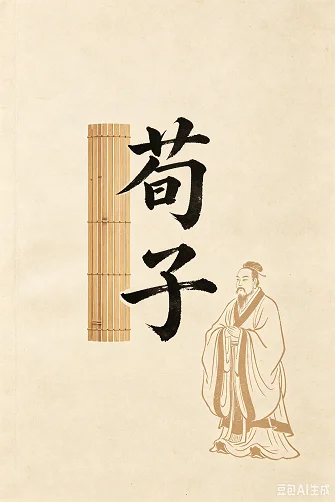 荀子
豆包AI生成